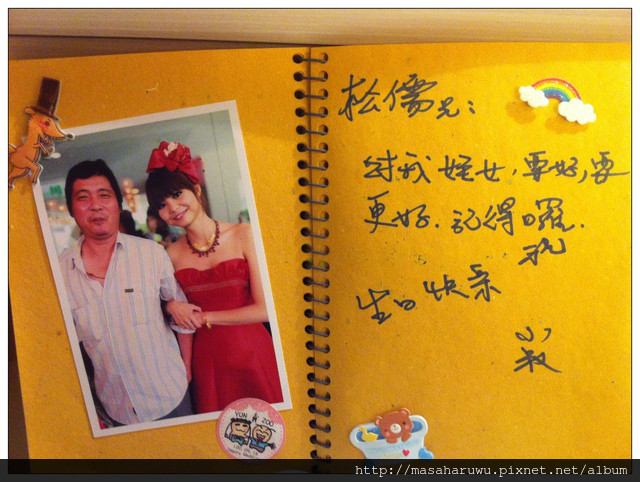 松儒兄：
對我姪女，要好，要
更好．記得囉．
祝
生日快樂
小
叔
YUN ZOO
http://masaharuwu.pixnet.net/album